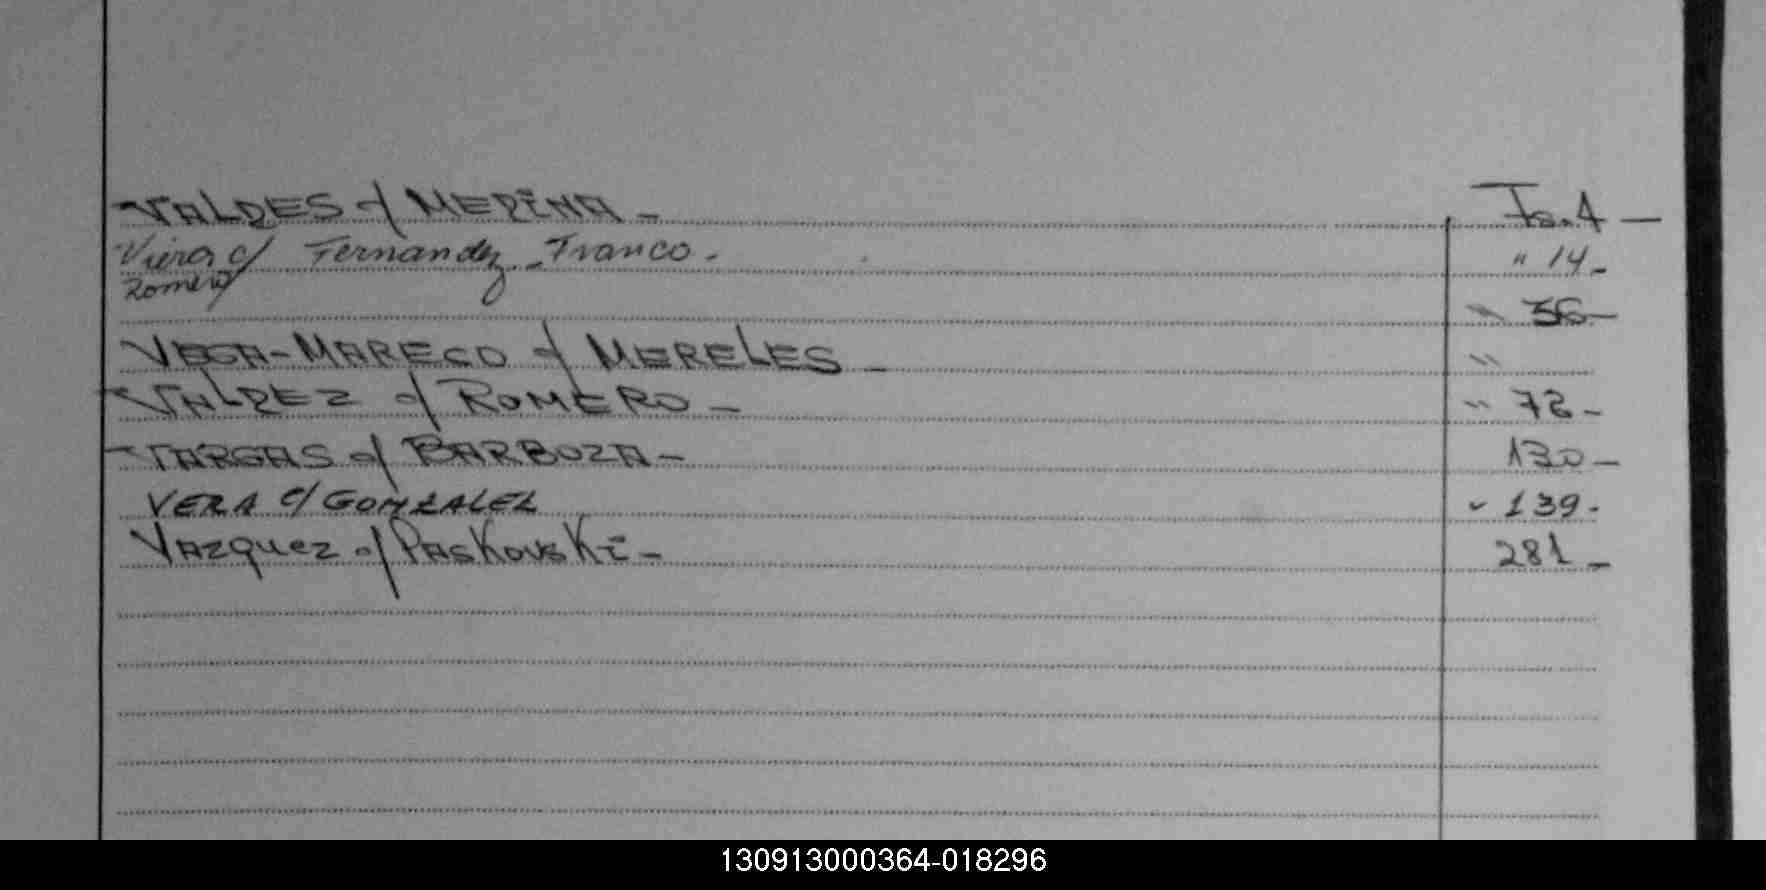 VALDES c/ MEDINA - Fs. 4 -
Viera c/ Fernandez - Franco. " 14 -
Romero
" 36 -
VEGA-MARECO c/ MERELES - "
VALDEZ c/ ROMERO - " 72 -
VARGAS c/ BARBOZA - 130 -
VERA c/ GONZALEZ " 139 -
VAZQUEZ c/ PASKOVSKI - 281 -
130913000364-018296